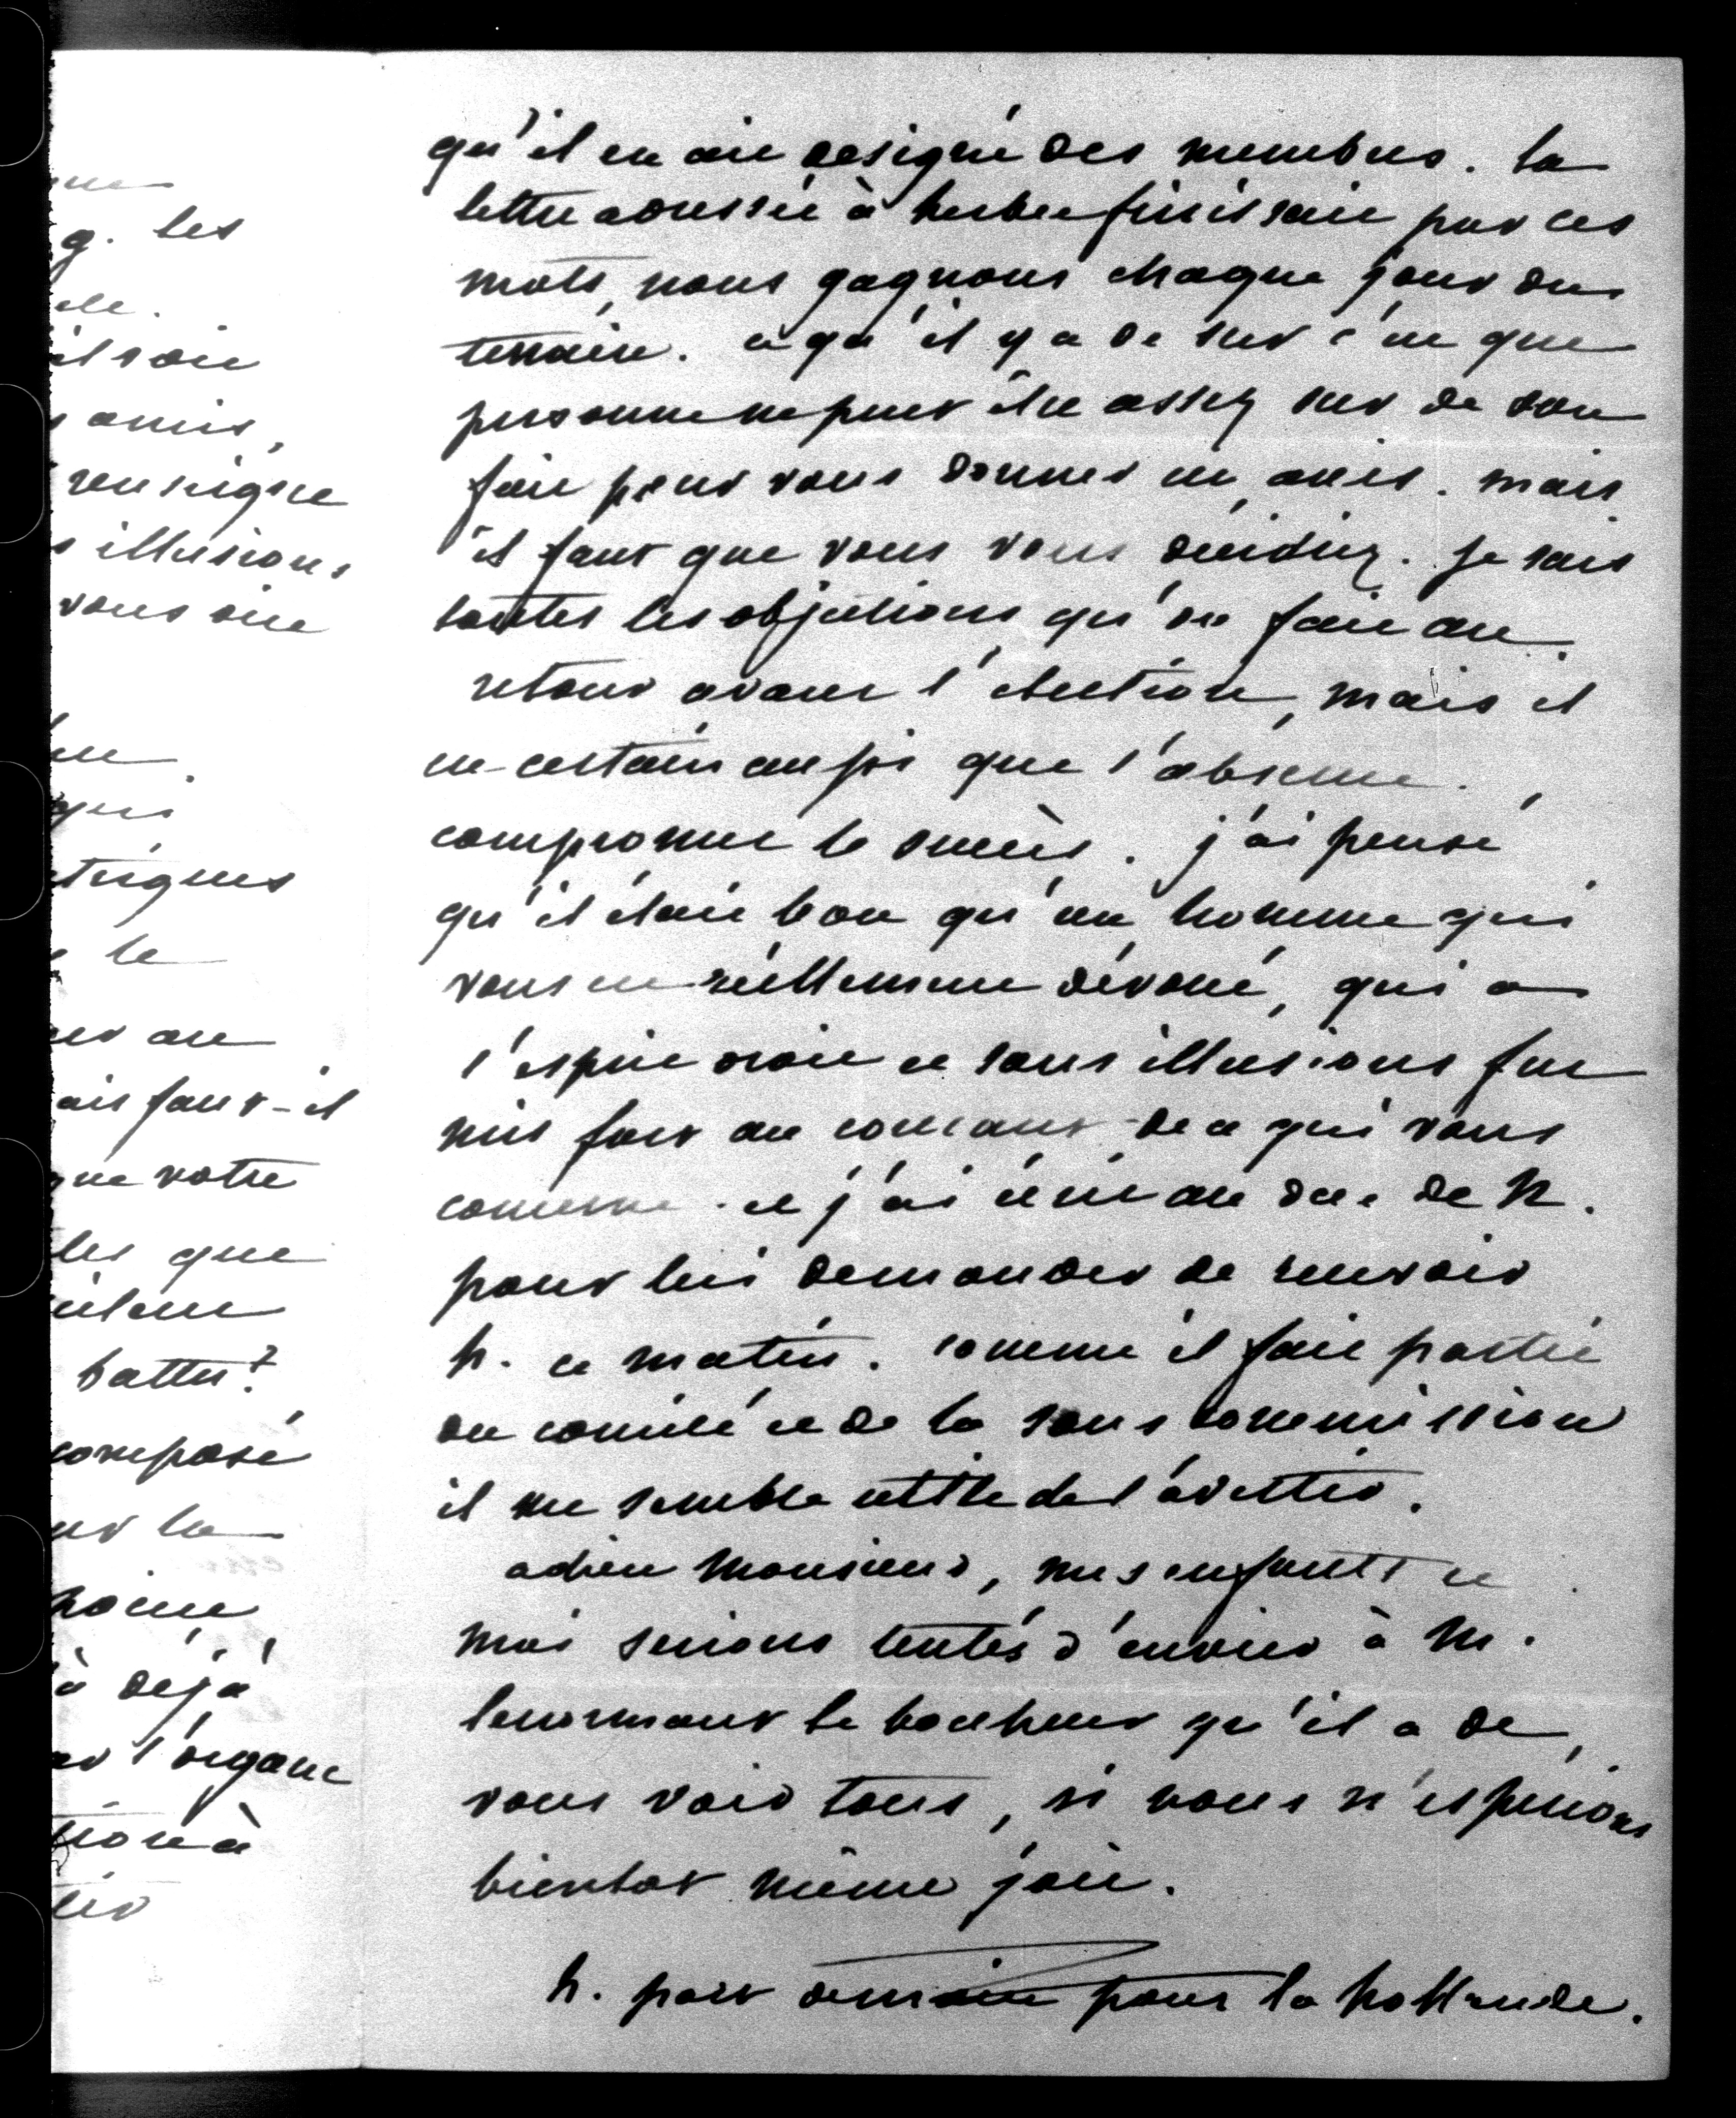 ne
g. les
ele.
il soit
s amis,
renseigne
s illusions
vous ait
qui
trigues
s le
au
ais faut-il
que votre
les que
battu?
composé
ur la
à déjà
l'organe
tion à
qu'il en ait désigné des membres. la
lettre adressée à herbet finissait par ces
mots, nous gagnons chaque jour du
terrain. ce qu'il y a de sur c'est que
personne ne peut être assez sur de son
fait pour vous donner un avis. mais
il faut que vous vous décidiez. Je sais
toutes les objections qu'on fait au
retour avant l'élection, mais il
est certain aussi que l'absence
compromet le succès. j'ai pensé
qu'il était bon qu'un homme qui
vous est réellement dévoué, qui a
l'esprit droit et sans illusions fut
mis fort au courant de ce qui vous
concerne. et j'ai écrit au duc de N.
pour lui demander de recevoir
h. ce matin. comme il fait partie
du comité et de la sous commission
il me semble utile de l'avertir.
adieu Monsieur, mes enfants et
moi serions tentés d'envier à M.
lenormant le bonheur qu'il a de
vous voir tous, si nous n'espérions
bientot même joie.
h. part demain pour la hollande.